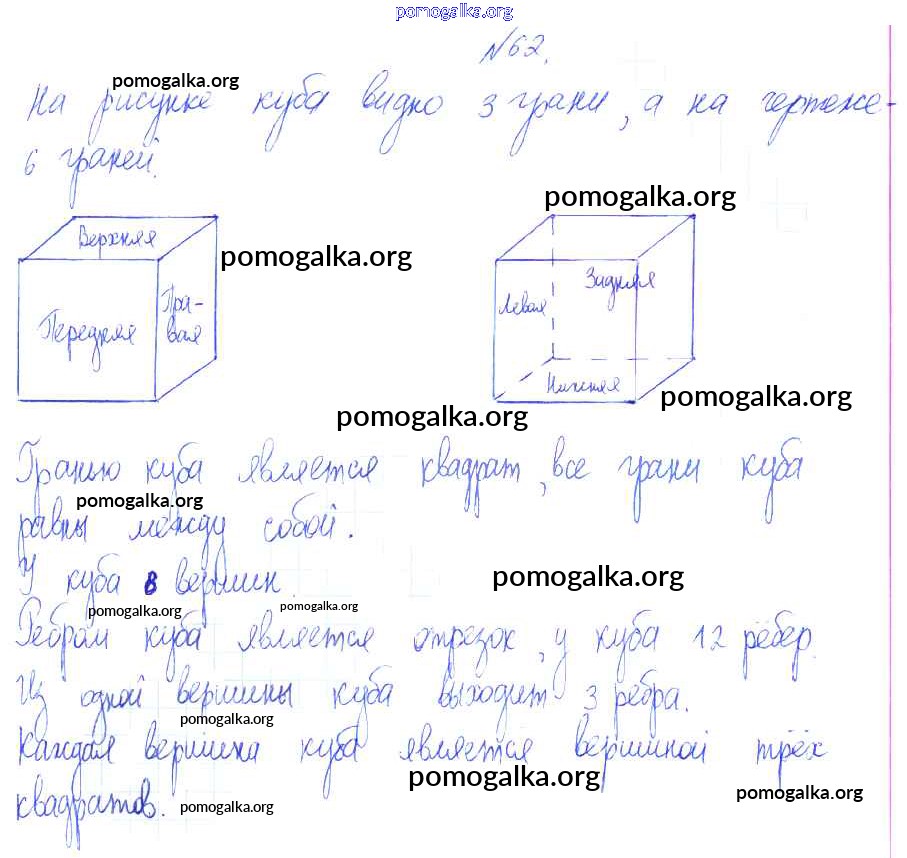 pomogalka.org
№62.
pomogalka.org
На рисунке куба видно 3 грани, а на чертеже-
6 граней.
pomogalka.org
Верхняя
pomogalka.org
Задняя
Пра-
Левая
Передняя
вая
Нижняя
pomogalka.org
pomogalka.org
Гранью куба является квадрат, все грани куба
pomogalka.org
равны между собой.
У куба 8 вершин
pomogalka.org
pomogalka.org
pomogalka.org
Ребром куба является отрезок, у куба 12 рёбер.
Из одной вершины куба выходит 3 ребра.
pomogalka.org
Каждая вершина куба является вершиной трёх
pomogalka.org
pomogalka.org
квадратов.
pomogalka.org